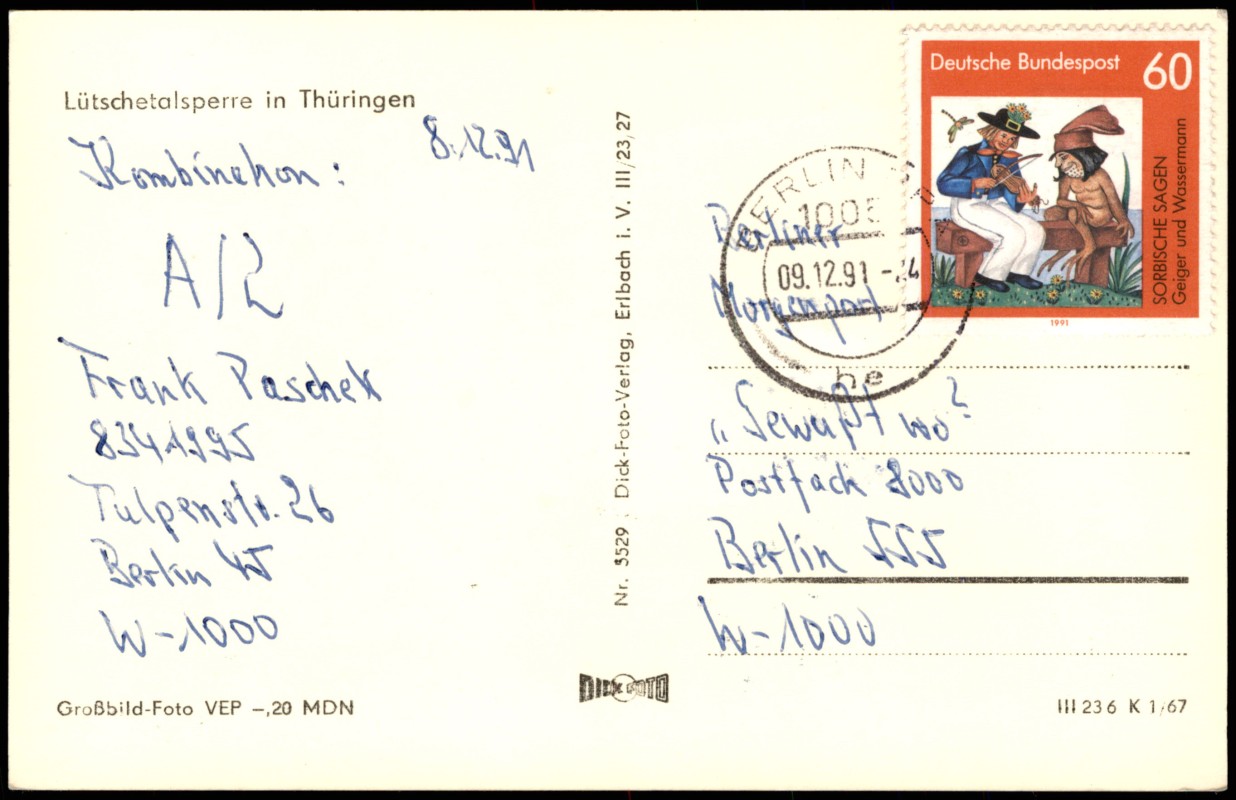 Lütschetalsperre in Thüringen
8.12.91
Kombination:
A/2
Frank Paschek
8341995
Tulpenstr. 26
Berlin 45
W-1000
Großbild-Foto VEP -,20 MDN
Nr. 3529 Dick-Foto-Verlag, Erlbach i. V. III/23/27
DICK FOTO
Deutsche Bundespost 60
SORBISCHE SAGEN
Geiger und Wassermann
1991
BERLIN
09.12.91
he
Berliner
Morgenpost
"Gewußt wo?"
Postfach 8000
Berlin 555
W-1000
III 23 6 K 1/67